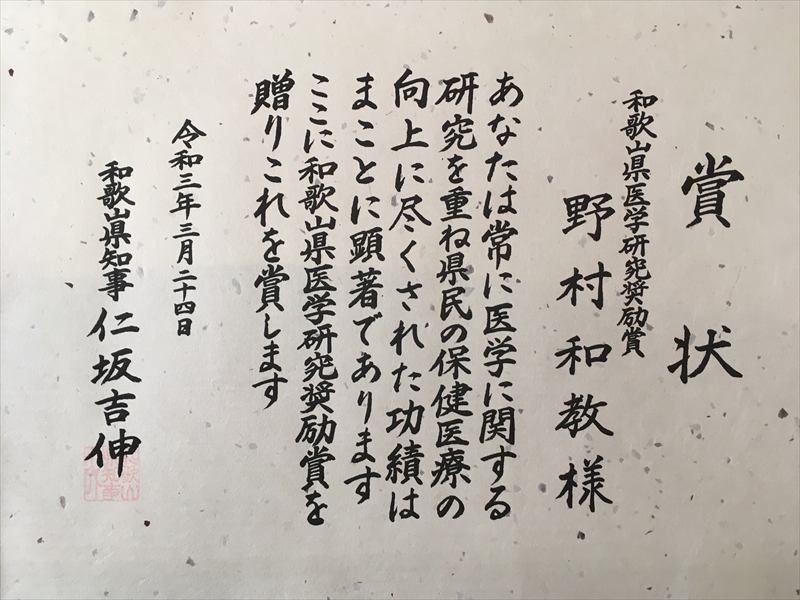 賞状
和歌山県医学研究奨励賞
野村和教様
あなたは常に医学に関する
研究を重ね県民の保健医療の
向上に尽くされた功績は
まことに顕著であります
ここに和歌山県医学研究奨励賞を
贈りこれを賞します
令和三年三月二十四日
和歌山県知事 仁坂吉伸